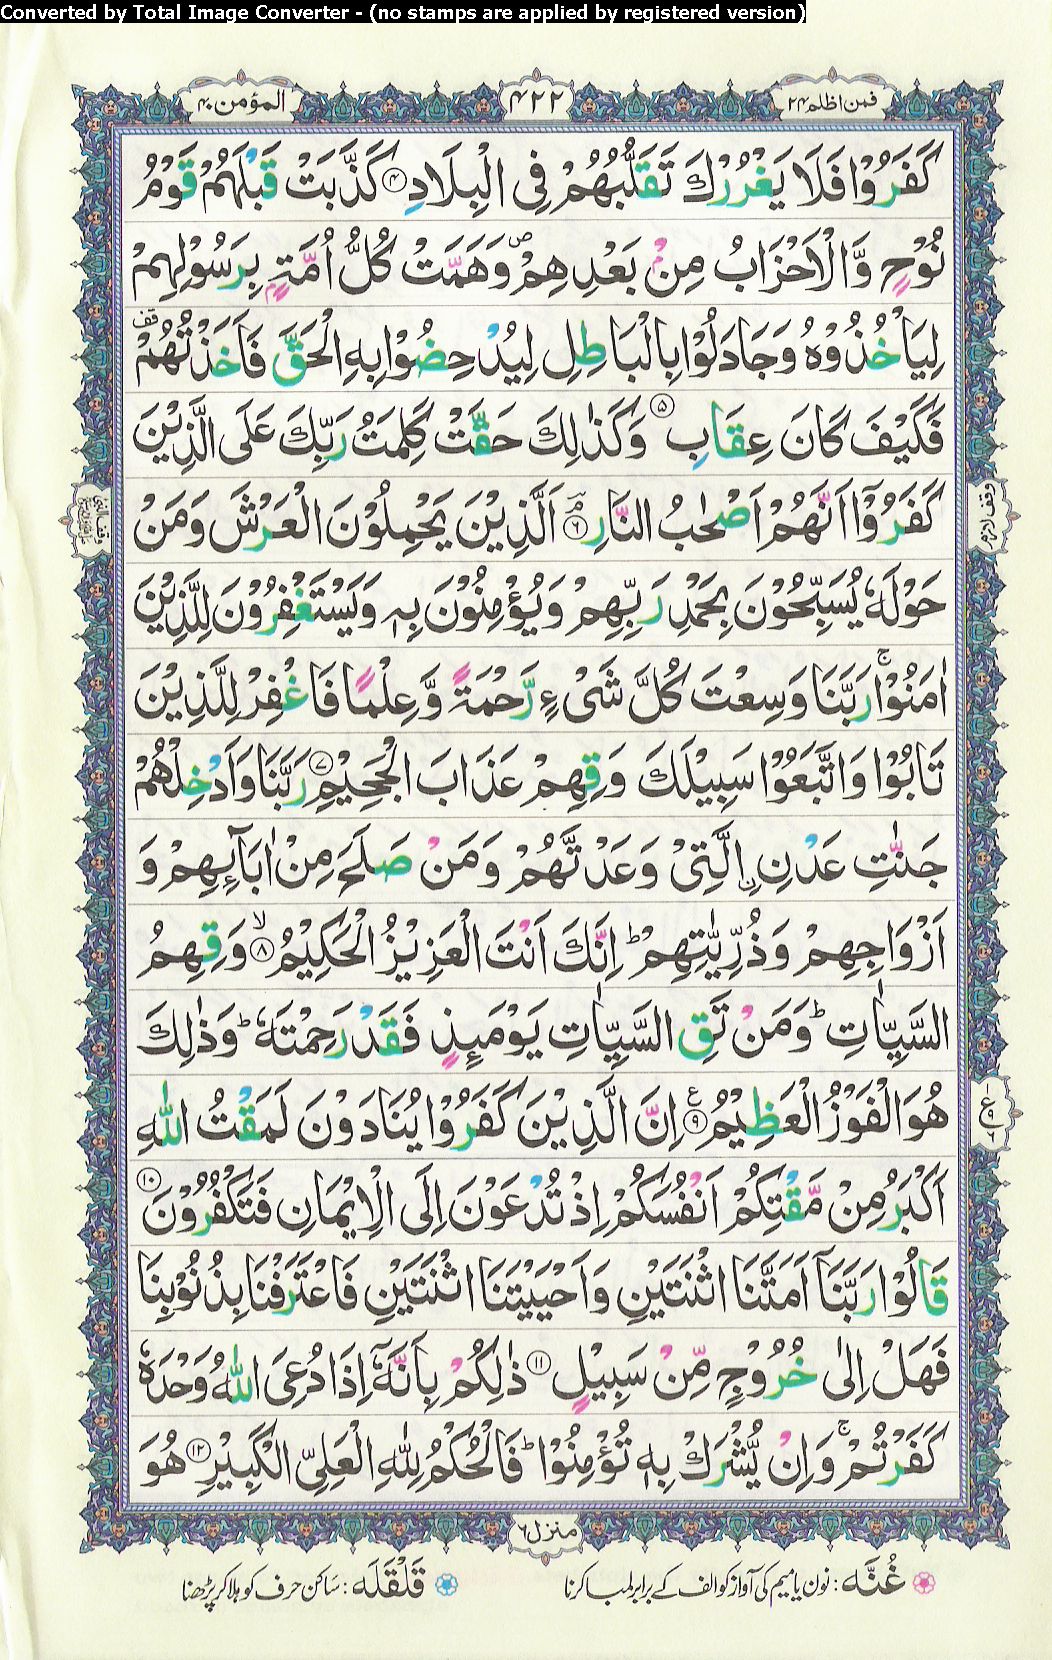 Converted by Total Image Converter - (no stamps are applied by registered version)
فمن اظلم ٢٤
٤٢٢
المؤمن ٤٠
كَفَرُوْا فَلَا يَغْرُرْكَ تَقَلُّبُهُمْ فِى الْبِلَادِ ﴿۴﴾ كَذَّبَتْ قَبْلَهُمْ قَوْمُ
نُوْحٍ وَّالْاَحْزَابُ مِنْۢ بَعْدِهِمْ ۖ وَهَمَّتْ كُلُّ اُمَّةٍۭ بِرَسُوْلِهِمْ
لِيَاْخُذُوْهُ وَجَادَلُوْا بِالْبَاطِلِ لِيُدْحِضُوْا بِهِ الْحَقَّ فَاَخَذْتُهُمْ قف
فَكَيْفَ كَانَ عِقَابِ ﴿۵﴾ وَكَذٰلِكَ حَقَّتْ كَلِمَتُ رَبِّكَ عَلَى الَّذِيْنَ
كَفَرُوْٓا اَنَّهُمْ اَصْحٰبُ النَّارِ ﴿۶﴾ۘ اَلَّذِيْنَ يَحْمِلُوْنَ الْعَرْشَ وَمَنْ
حَوْلَهٗ يُسَبِّحُوْنَ بِحَمْدِ رَبِّهِمْ وَيُؤْمِنُوْنَ بِهٖ وَيَسْتَغْفِرُوْنَ لِلَّذِيْنَ
اٰمَنُوْا ۚ رَبَّنَا وَسِعْتَ كُلَّ شَىْءٍ رَّحْمَةً وَّعِلْمًا فَاغْفِرْ لِلَّذِيْنَ
تَابُوْا وَاتَّبَعُوْا سَبِيْلَكَ وَقِهِمْ عَذَابَ الْجَحِيْمِ ﴿۷﴾ رَبَّنَا وَاَدْخِلْهُمْ
جَنّٰتِ عَدْنِ ِۨالَّتِىْ وَعَدْتَّهُمْ وَمَنْ صَلَحَ مِنْ اٰبَآئِهِمْ وَ
اَزْوَاجِهِمْ وَذُرِّيّٰتِهِمْ ؕ اِنَّكَ اَنْتَ الْعَزِيْزُ الْحَكِيْمُ ﴿۸﴾ۙ وَقِهِمُ
السَّيِّاٰتِ ؕ وَمَنْ تَقِ السَّيِّاٰتِ يَوْمَئِذٍ فَقَدْ رَحِمْتَهٗ ؕ وَذٰلِكَ
هُوَ الْفَوْزُ الْعَظِيْمُ ﴿۹﴾ ع اِنَّ الَّذِيْنَ كَفَرُوْا يُنَادَوْنَ لَمَقْتُ اللّٰهِ
اَكْبَرُ مِنْ مَّقْتِكُمْ اَنْفُسَكُمْ اِذْ تُدْعَوْنَ اِلَى الْاِيْمَانِ فَتَكْفُرُوْنَ ﴿۱۰﴾
قَالُوْا رَبَّنَآ اَمَتَّنَا اثْنَتَيْنِ وَاَحْيَيْتَنَا اثْنَتَيْنِ فَاعْتَرَفْنَا بِذُنُوْبِنَا
فَهَلْ اِلٰى خُرُوْجٍ مِّنْ سَبِيْلٍ ﴿۱۱﴾ ذٰلِكُمْ بِاَنَّهٗٓ اِذَا دُعِىَ اللّٰهُ وَحْدَهٗ
كَفَرْتُمْ ۚ وَاِنْ يُّشْرَكْ بِهٖ تُؤْمِنُوْا ؕ فَالْحُكْمُ لِلّٰهِ الْعَلِىِّ الْكَبِيْرِ ﴿۱۲﴾ هُوَ
وقف لازم
ع ۱ ۹ ۶
منزل ۶
غُنَّه : نون یا میم کی آواز کو الف کے برابر لمبا کرنا
قَلْقَلَه : ساکن حرف کو ہلا کر پڑھنا